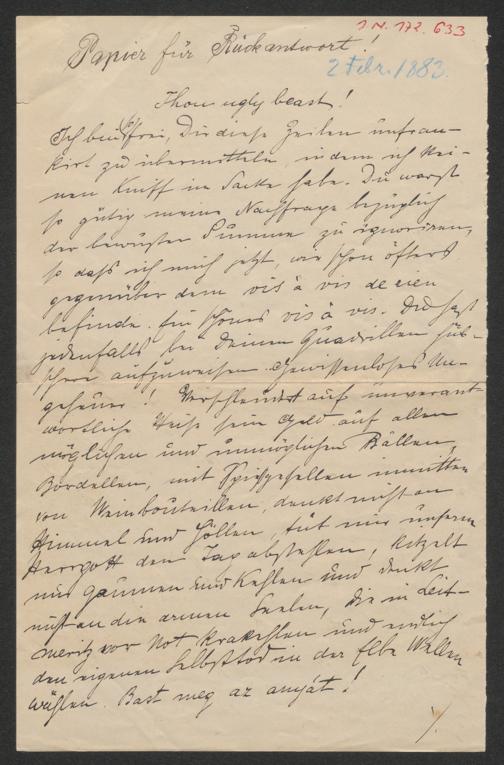 I N. 172.633
Papier für Rückantwort!
2 Febr. 1883.
Thou ugly beast!
Ich bin so frei, Dir diese Zeilen unfran-
kirt zu übermitteln, indem ich kei-
nen Kniff im Sacke habe. Du warst
so gütig meine Nachfrage bezüglich
der bewußten Summe zu ignoriren,
so daß ich mich jetzt, wie schon öfters
gegenüber dem vis à vis de rien
befinde. Ein schönes vis à vis. Du hast
jedenfalls bei Deinen Quadrillen hüb-
schere aufzuweisen. Gewissenloses Un-
geheuer! Verschleudert auf unverant-
wortliche Weise sein Geld auf allen
möglichen und unmöglichen Bällen,
Bordellen, mit Spießgesellen inmitten
von Weinbouteillen, denkt nicht an
Himmel und Höllen, tut nur unserm
Herrgott den Tag abstehlen, kitzelt
nur Gaumen und Kehlen und denkt
nicht an die armen Seelen, die in Leit-
meritz vor Not krakehlen und endlich
den eigenen Selbsttod in der Elbe Wellen
wählen. Bast meg az anyát!